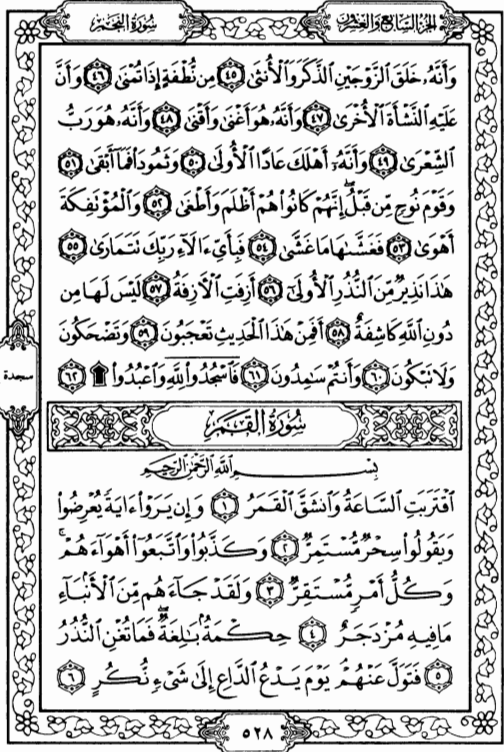 الجزء السابع والعشرون
سورة النجم
وَأَنَّهُۥ خَلَقَ ٱلزَّوۡجَيۡنِ ٱلذَّكَرَ وَٱلۡأُنثَىٰ ٤٥ مِن نُّطۡفَةٍ إِذَا تُمۡنَىٰ ٤٦ وَأَنَّ
عَلَيۡهِ ٱلنَّشۡأَةَ ٱلۡأُخۡرَىٰ ٤٧ وَأَنَّهُۥ هُوَ أَغۡنَىٰ وَأَقۡنَىٰ ٤٨ وَأَنَّهُۥ هُوَ رَبُّ
ٱلشِّعۡرَىٰ ٤٩ وَأَنَّهُۥٓ أَهۡلَكَ عَادًا ٱلۡأُولَىٰ ٥٠ وَثَمُودَا۟ فَمَآ أَبۡقَىٰ ٥١
وَقَوۡمَ نُوحٍ مِّن قَبۡلُۖ إِنَّهُمۡ كَانُوا۟ هُمۡ أَظۡلَمَ وَأَطۡغَىٰ ٥٢ وَٱلۡمُؤۡتَفِكَةَ
أَهۡوَىٰ ٥٣ فَغَشَّىٰهَا مَا غَشَّىٰ ٥٤ فَبِأَيِّ ءَالَآءِ رَبِّكَ تَتَمَارَىٰ ٥٥
هَٰذَا نَذِيرٌ مِّنَ ٱلنُّذُرِ ٱلۡأُولَىٰٓ ٥٦ أَزِفَتِ ٱلۡأٓزِفَةُ ٥٧ لَيۡسَ لَهَا مِن
دُونِ ٱللَّهِ كَاشِفَةٌ ٥٨ أَفَمِنۡ هَٰذَا ٱلۡحَدِيثِ تَعۡجَبُونَ ٥٩ وَتَضۡحَكُونَ
وَلَا تَبۡكُونَ ٦٠ وَأَنتُمۡ سَٰمِدُونَ ٦١ فَٱسۡجُدُوا۟ لِلَّهِ وَٱعۡبُدُوا۟ ۩ ٦٢
سجدة
سُورَةُ القَمَرِ
بِسۡمِ ٱللَّهِ ٱلرَّحۡمَٰنِ ٱلرَّحِيمِ
ٱقۡتَرَبَتِ ٱلسَّاعَةُ وَٱنشَقَّ ٱلۡقَمَرُ ١ وَإِن يَرَوۡا۟ ءَايَةً يُعۡرِضُوا۟
وَيَقُولُوا۟ سِحۡرٌ مُّسۡتَمِرٌّ ٢ وَكَذَّبُوا۟ وَٱتَّبَعُوٓا۟ أَهۡوَآءَهُمۡۚ
وَكُلُّ أَمۡرٍ مُّسۡتَقِرٌّ ٣ وَلَقَدۡ جَآءَهُم مِّنَ ٱلۡأَنۢبَآءِ
مَا فِيهِ مُزۡدَجَرٌ ٤ حِكۡمَةُۢ بَٰلِغَةٌۖ فَمَا تُغۡنِ ٱلنُّذُرُ
٥ فَتَوَلَّ عَنۡهُمۡۘ يَوۡمَ يَدۡعُ ٱلدَّاعِ إِلَىٰ شَيۡءٍ نُّكُرٍ ٦
٥٢٨